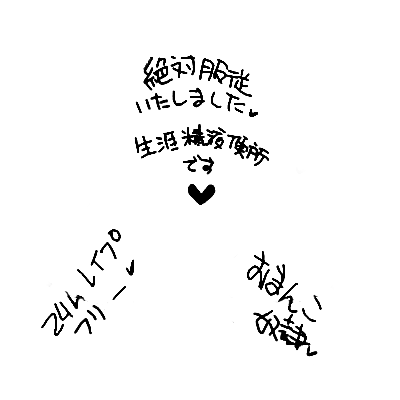 絶対服従
いたしました♥
生涯精液便所
です
♥
24hレイプ
フリー♥
おまんこ